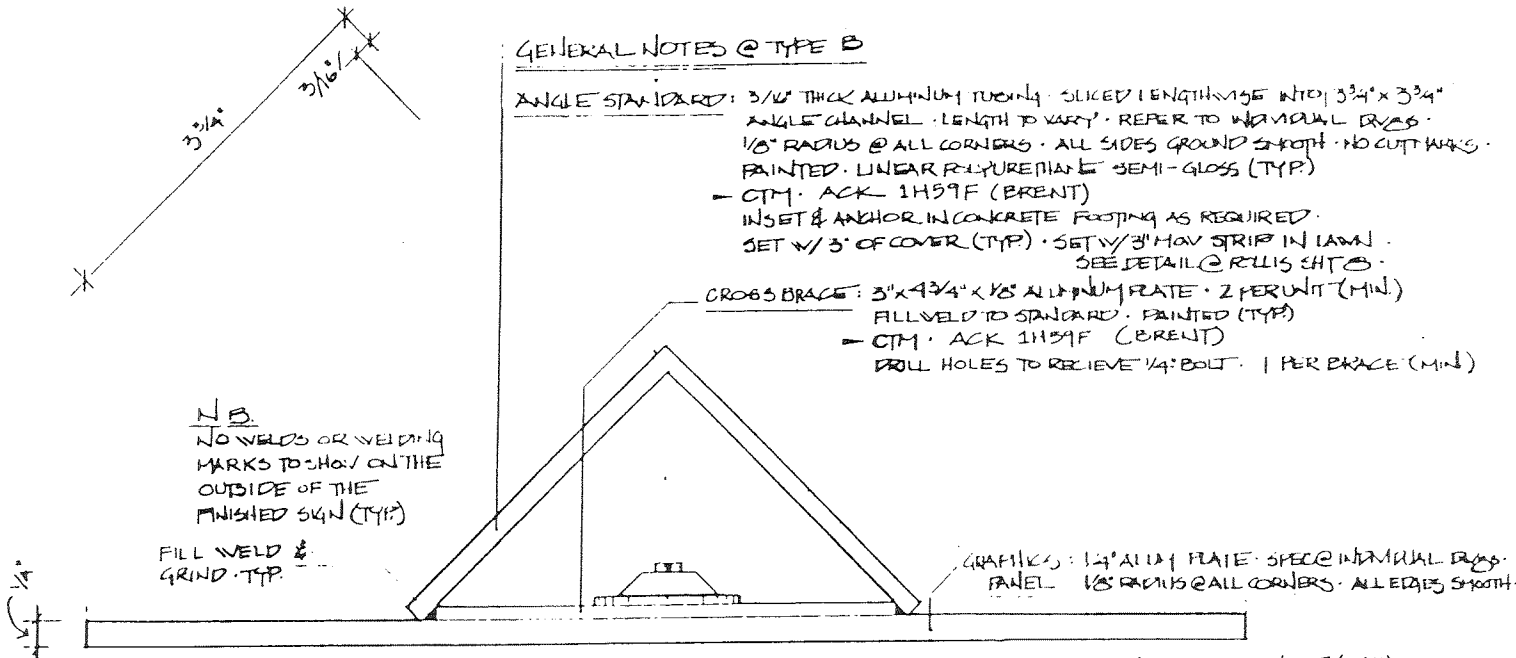 3¾"
3/16"
GENERAL NOTES @ TYPE B
ANGLE STANDARD: 3/16" THICK ALUMINUM TUBING · SLICED LENGTHWISE INTO 3¾" x 3¾"
ANGLE CHANNEL · LENGTH TO VARY · REFER TO INDIVIDUAL DWGS ·
1/8" RADIUS @ ALL CORNERS · ALL SIDES GROUND SMOOTH · NO CUTT MARKS ·
PAINTED · LINEAR POLYURETHANE SEMI-GLOSS (TYP.)
– CTM · ACK 1H59F (BRENT)
INSET & ANCHOR IN CONCRETE FOOTING AS REQUIRED ·
SET W/ 3" OF COVER (TYP.) · SET W/ 3" MOW STRIP IN LAWN ·
SEE DETAIL @ SHT 8 ·
CROSS BRACE: 3" x 4¾" x 1/8" ALUMINUM PLATE · 2 PER UNIT (MIN.)
FILL WELD TO STANDARD · PAINTED (TYP.)
– CTM · ACK 1H59F (BRENT)
DRILL HOLES TO RECIEVE 1/4" BOLT · 1 PER BRACE (MIN.)
N.B.
NO WELDS OR WELDING
MARKS TO SHOW ON THE
OUTSIDE OF THE
FINISHED SIGN (TYP.)
FILL WELD &
GRIND · TYP.
1/4"
GRAPHICS: 1/4" ALUM PLATE · SPEC @ INDIVIDUAL DWGS ·
PANEL 1/8" RADIUS @ ALL CORNERS · ALL EDGES SMOOTH ·